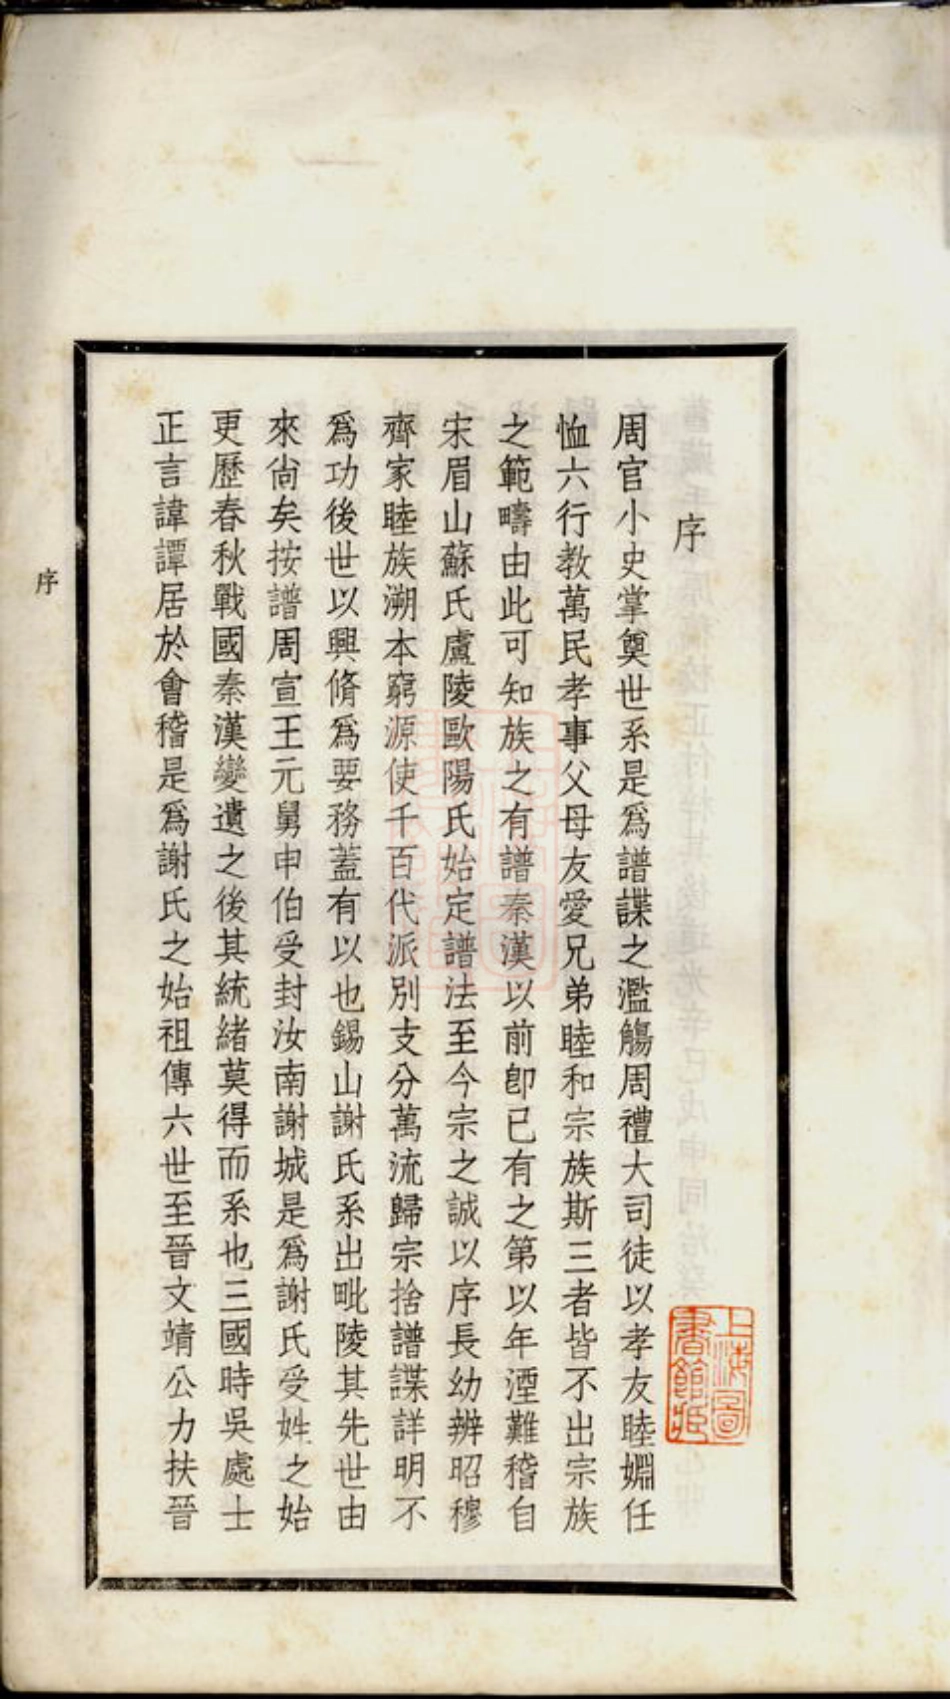 序
周官小史掌奠世系是爲譜諜之濫觴周禮大司徒以孝友睦婣任
恤六行教萬民孝事父母友愛兄弟睦和宗族斯三者皆不出宗族
之範疇由此可知族之有譜秦漢以前卽已有之第以年湮難稽自
宋眉山蘇氏盧陵歐陽氏始定譜法至今宗之誠以序長幼辨昭穆
齊家睦族溯本窮源使千百代派別支分萬流歸宗捨譜諜詳明不
爲功後世以興脩爲要務蓋有以也錫山謝氏系出毗陵其先世由
來尙矣按譜周宣王元舅申伯受封汝南謝城是爲謝氏受姓之始
更歷春秋戰國秦漢變遺之後其統緒莫得而系也三國時吳處士
正言諱譚居於會稽是爲謝氏之始祖傳六世至晉文靖公力扶晉
序
上海圖
書館藏